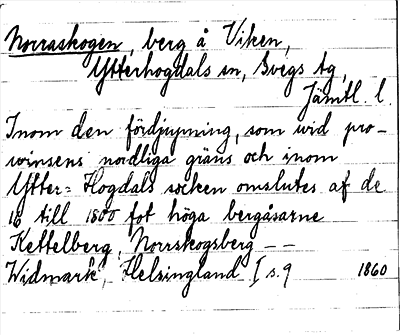 Norraskogen, berg å Viken,
Ytterhogdals sn, Svegs tg,
Jämtl. l.
Inom den fördjupning, som vid pro-
vinsens nordliga gräns och inom
Ytter-Hogdals socken omslutes af de
16 till 1800 fot höga bergåsarne
Kettelberg, Norrskogsberg --
Widmark, Helsingland I s. 9 1860